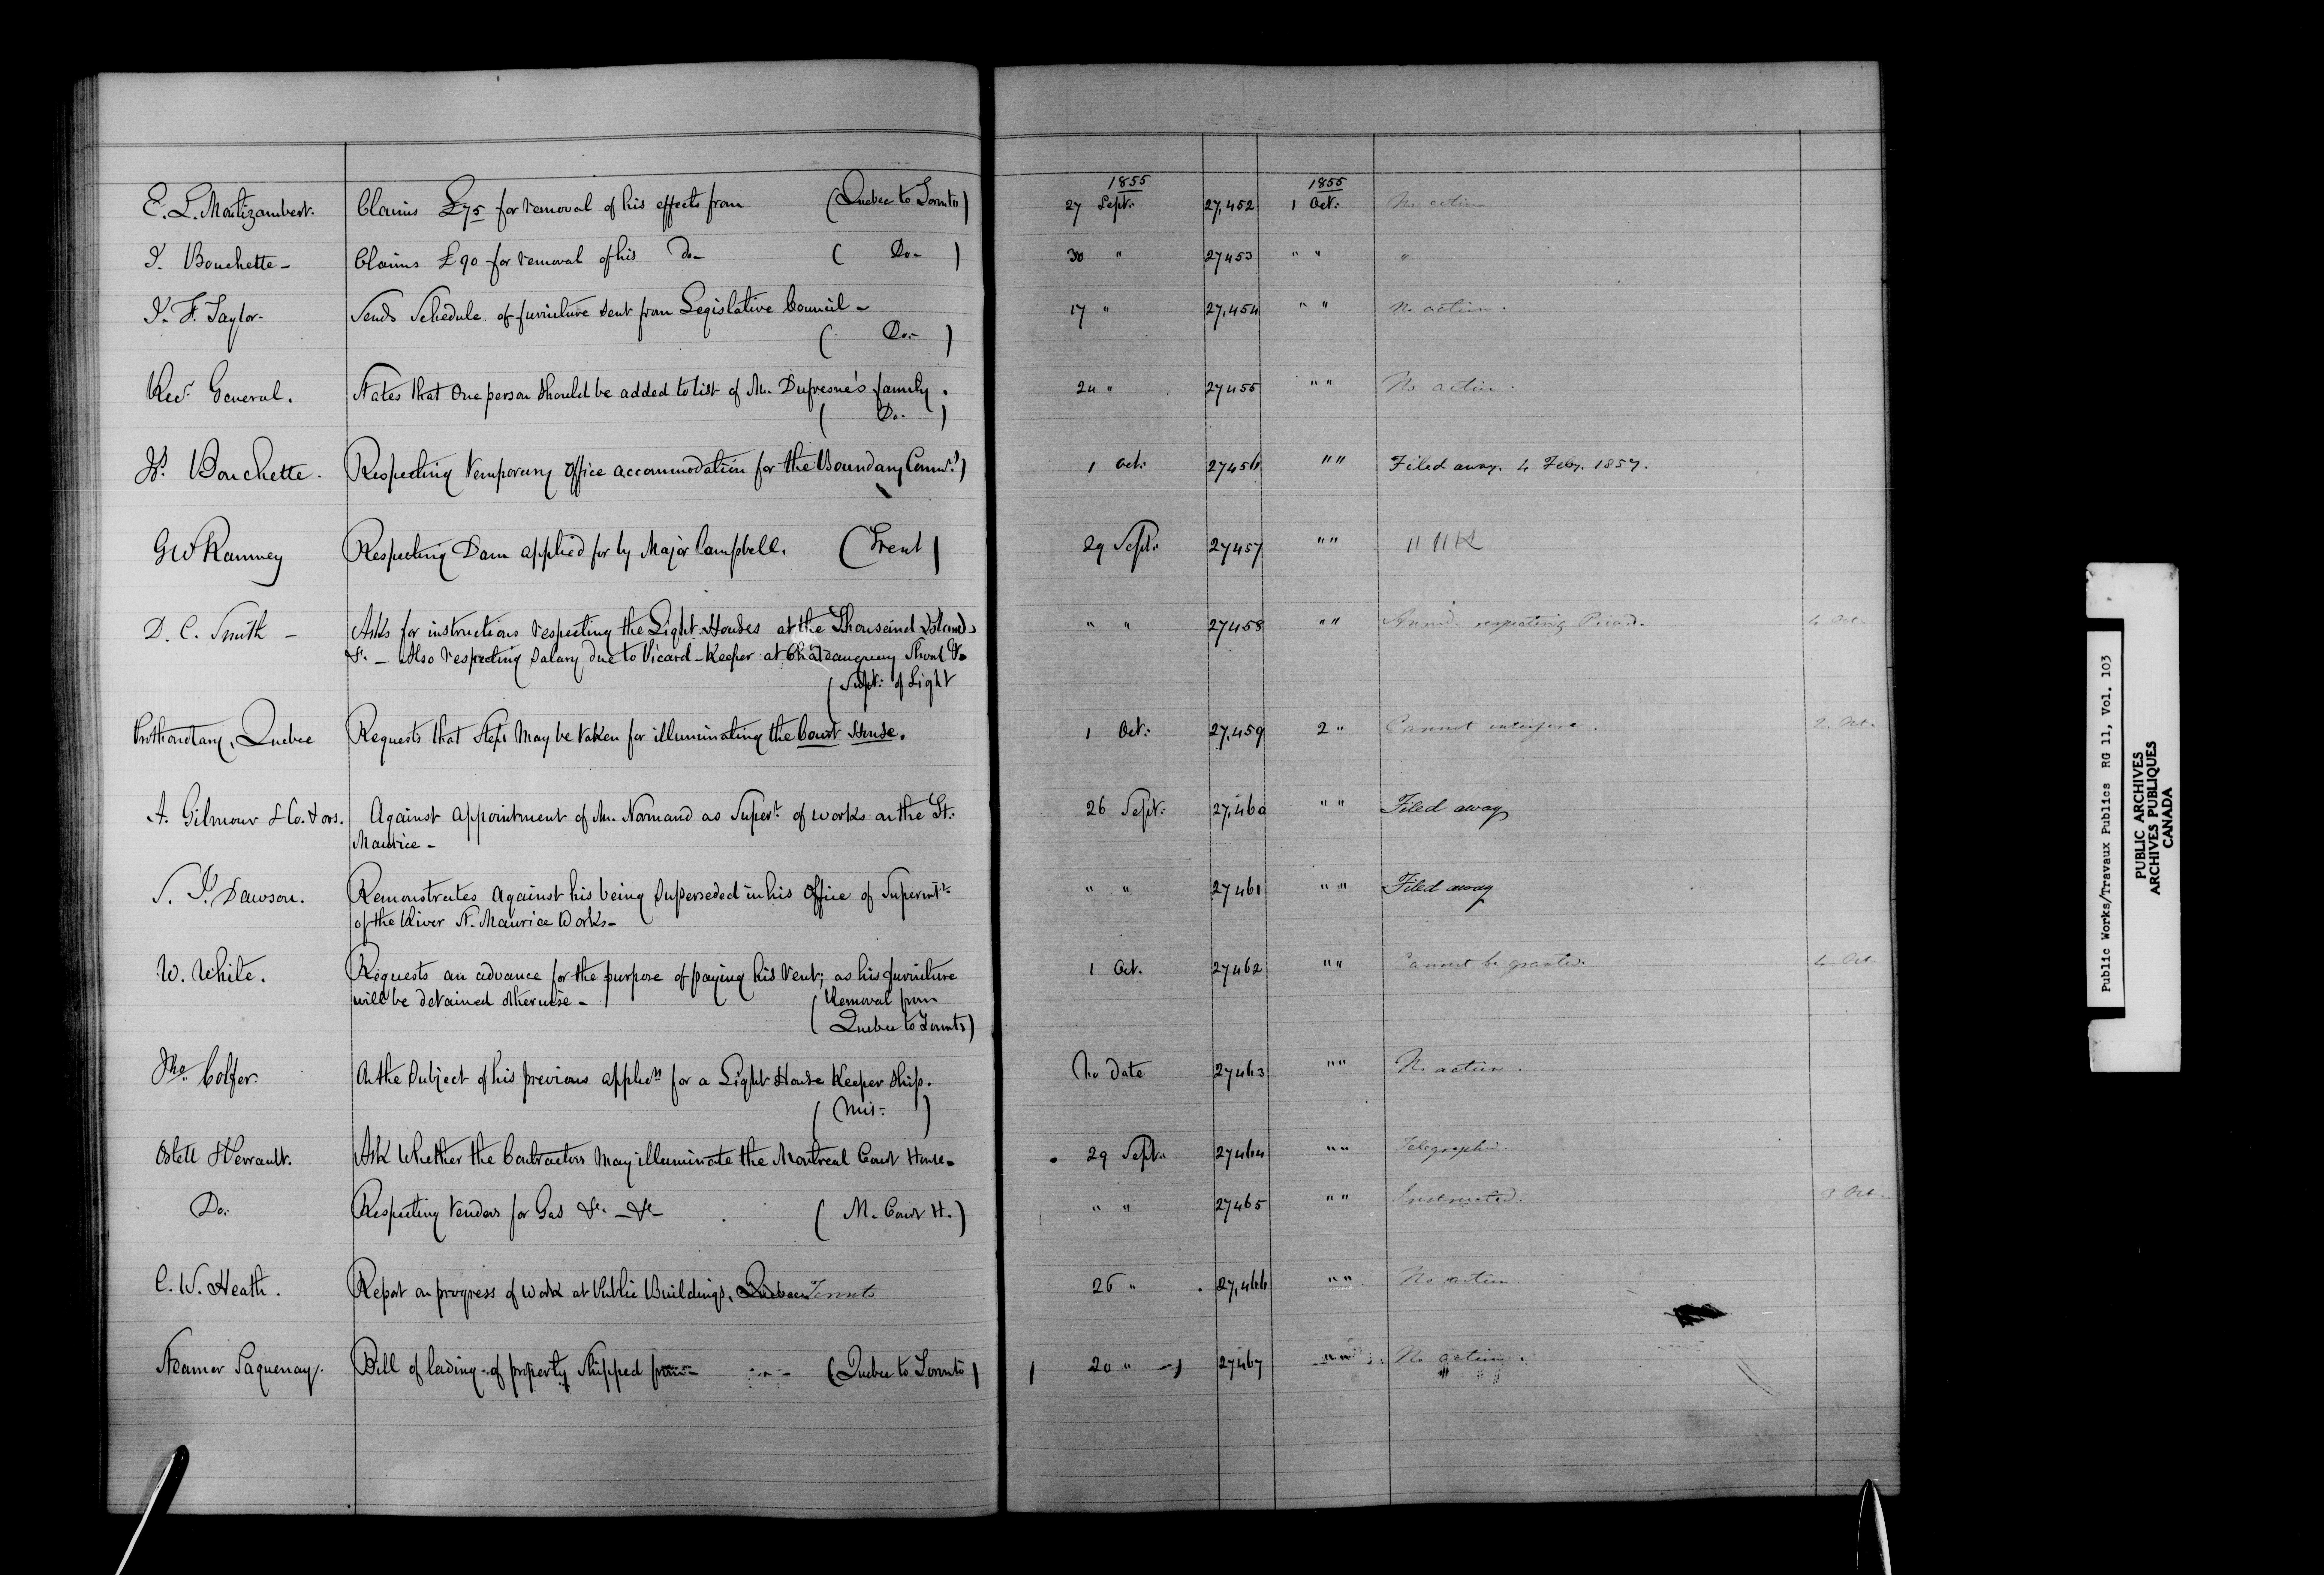 1855 1855
E. L. Montizambert. Claims £75 for removal of his effects from (Quebec to Toronto) 27 Sept: 27,452 1 Oct: No action
J. Bouchette - Claims £90 for removal of his Do- ( Do- ) 30 " 27453 " " "
J. F. Taylor. Sends Schedule of furniture sent from Legislative Council - 17 " 27,454 " " No action.
( Do:- )
Recr. General. States that One person should be added to list of Mr. Dufresne's family. 24 " 27455 " " No action.
( Do- )
Js. Bouchette. Respecting temporary Office accommodation for the Boundary Commrs) 1 Oct: 27456 " " Filed away. 4 Feby. 1857.
GW Ranney Respecting Dam applied for by Major Campbell. (Trent) 29 Sept: 27457 " "
D. C. Smith - Asks for instructions respecting the Light-Houses at the Thousand Islands " " 27458 " " respecting 4 Oct.
&c. - Also respecting Salary due to Picard-Keeper at Chateauguay Shoal &c
(Supt: of Light
Prothonotary, Quebec Requests that Steps May be taken for illuminating the Court House. 1 Oct: 27,459 2 " Cannot interfere. 2. Oct.
A. Gilmour & Co. & ors. Against appointment of Mr. Normand as Supert. of works on the St. 26 Sept: 27,460 " " Filed away
Maurice -
S. J. Dawson. Remonstrates against his being Superseded in his Office of Superintt. " " 27461 " " Filed away
of the River St. Maurice Works-
W. White. Requests an advance for the purpose of paying his rent; as his furniture 1 Oct. 27462 " " Cannot be granted. 4 Oct
will be detained otherwise - (Removal from
(Quebec to Toronto)
Jno. Colfer. On the Subject of his previous applicn for a Light House Keeper Ship. No date 27463 " " No action.
( Mis- )
Ostell & Perrault. Ask Whether the Contractors May illuminate the Montreal Court House. 29 Sept: 27464 " " Telegraphed
Do. Respecting tenders for Gas &c. - &c- ( M. Court H.) " " 27465 " " Instructed. 3 Oct.
C. W. Heath. Report on progress of work at Public Buildings, Quebec Toronto 26 " 27,466 " " No action
Steamer Saguenay. Bill of lading of property Shipped from - (Quebec to Toronto) 20 " 27467 " " No action.
Public Works/Travaux Publics RG 11, Vol. 103
PUBLIC ARCHIVES
ARCHIVES PUBLIQUES
CANADA